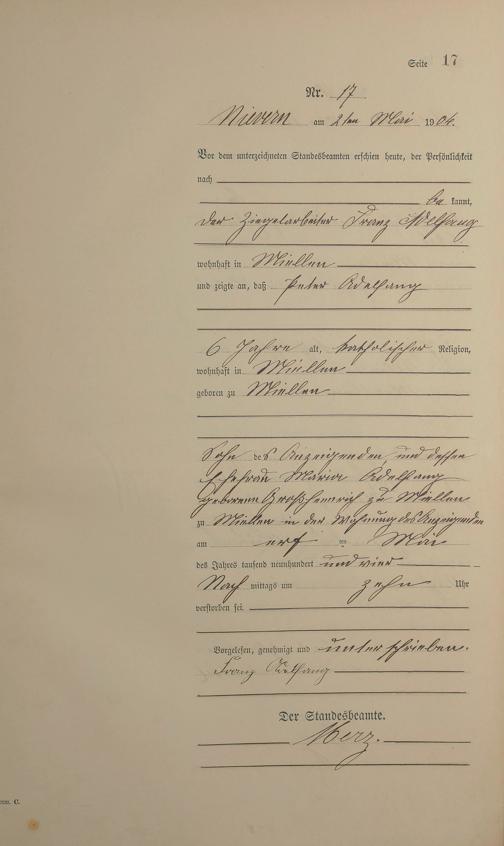 Seite 17
Nr. 17
Nievern am 2ten Mai 1904.
Vor dem unterzeichneten Standesbeamten erschien heute, der Persönlichkeit
nach
be kannt,
der Ziegelarbeiter Franz Adelfang
wohnhaft in Miellen
und zeigte an, daß Peter Adelfang
6 Jahre alt, katholischer Religion,
wohnhaft in Miellen
geboren zu Miellen
Sohn des Anzeigenden und dessen
Ehefrau Maria Adelfang
geborene Großheinrich zu Miellen
zu Miellen in der Wohnung des Anzeigenden
am Mai
des Jahres tausend neunhundert und vier
Nach mittags um zehn Uhr
verstorben sei.
Vorgelesen, genehmigt und unterschrieben.
Franz Adelfang
Der Standesbeamte.
Merz.
C.